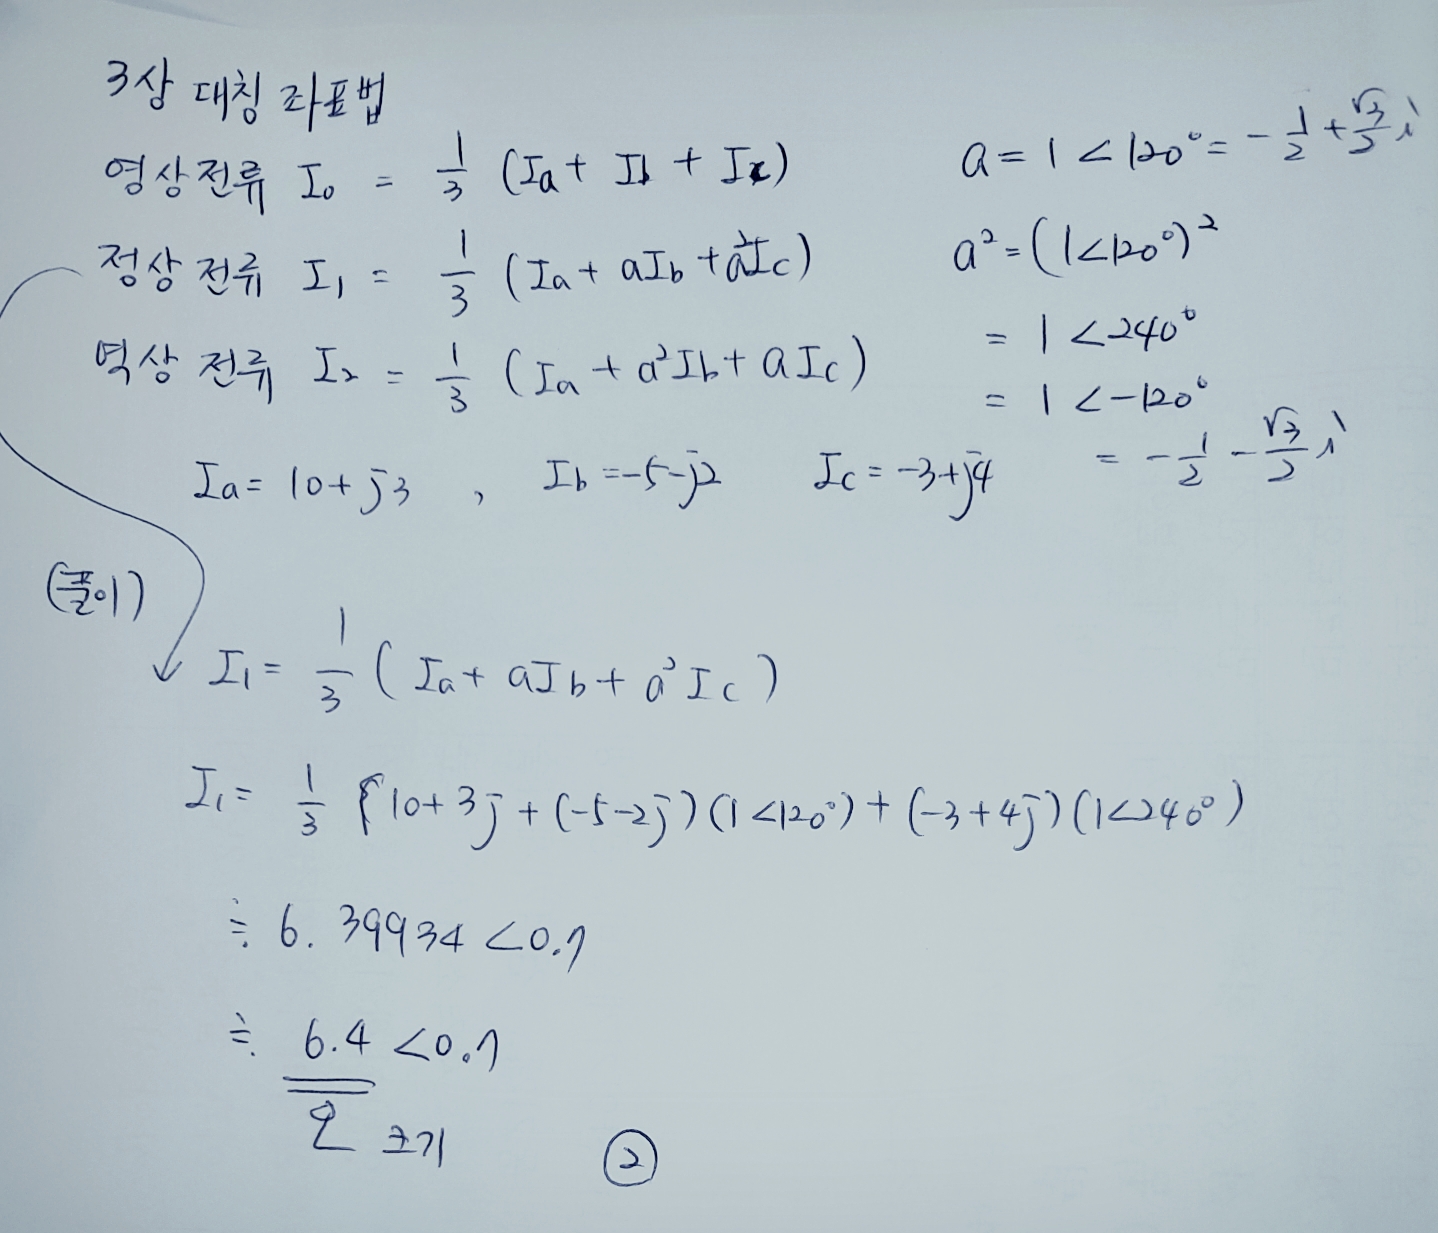 3상 대칭 좌표법
영상전류 I₀ = 1/3 (Ia + Ib + Ic)
정상 전류 I₁ = 1/3 (Ia + aIb + a²Ic)
역상 전류 I₂ = 1/3 (Ia + a²Ib + aIc)
a = 1∠120° = -1/2 + √3/2 i
a² = (1∠120°)²
= 1∠240°
= 1∠-120°
= -1/2 - √3/2 i
Ia = 10+j3 , Ib = -5-j2 Ic = -3+j4
(풀이)
I₁ = 1/3 (Ia + aIb + a²Ic)
I₁ = 1/3 {10+3j + (-5-2j)(1∠120°) + (-3+4j)(1∠240°)
≒ 6.39934 ∠0.1
≒ 6.4 ∠0.1
크기
②